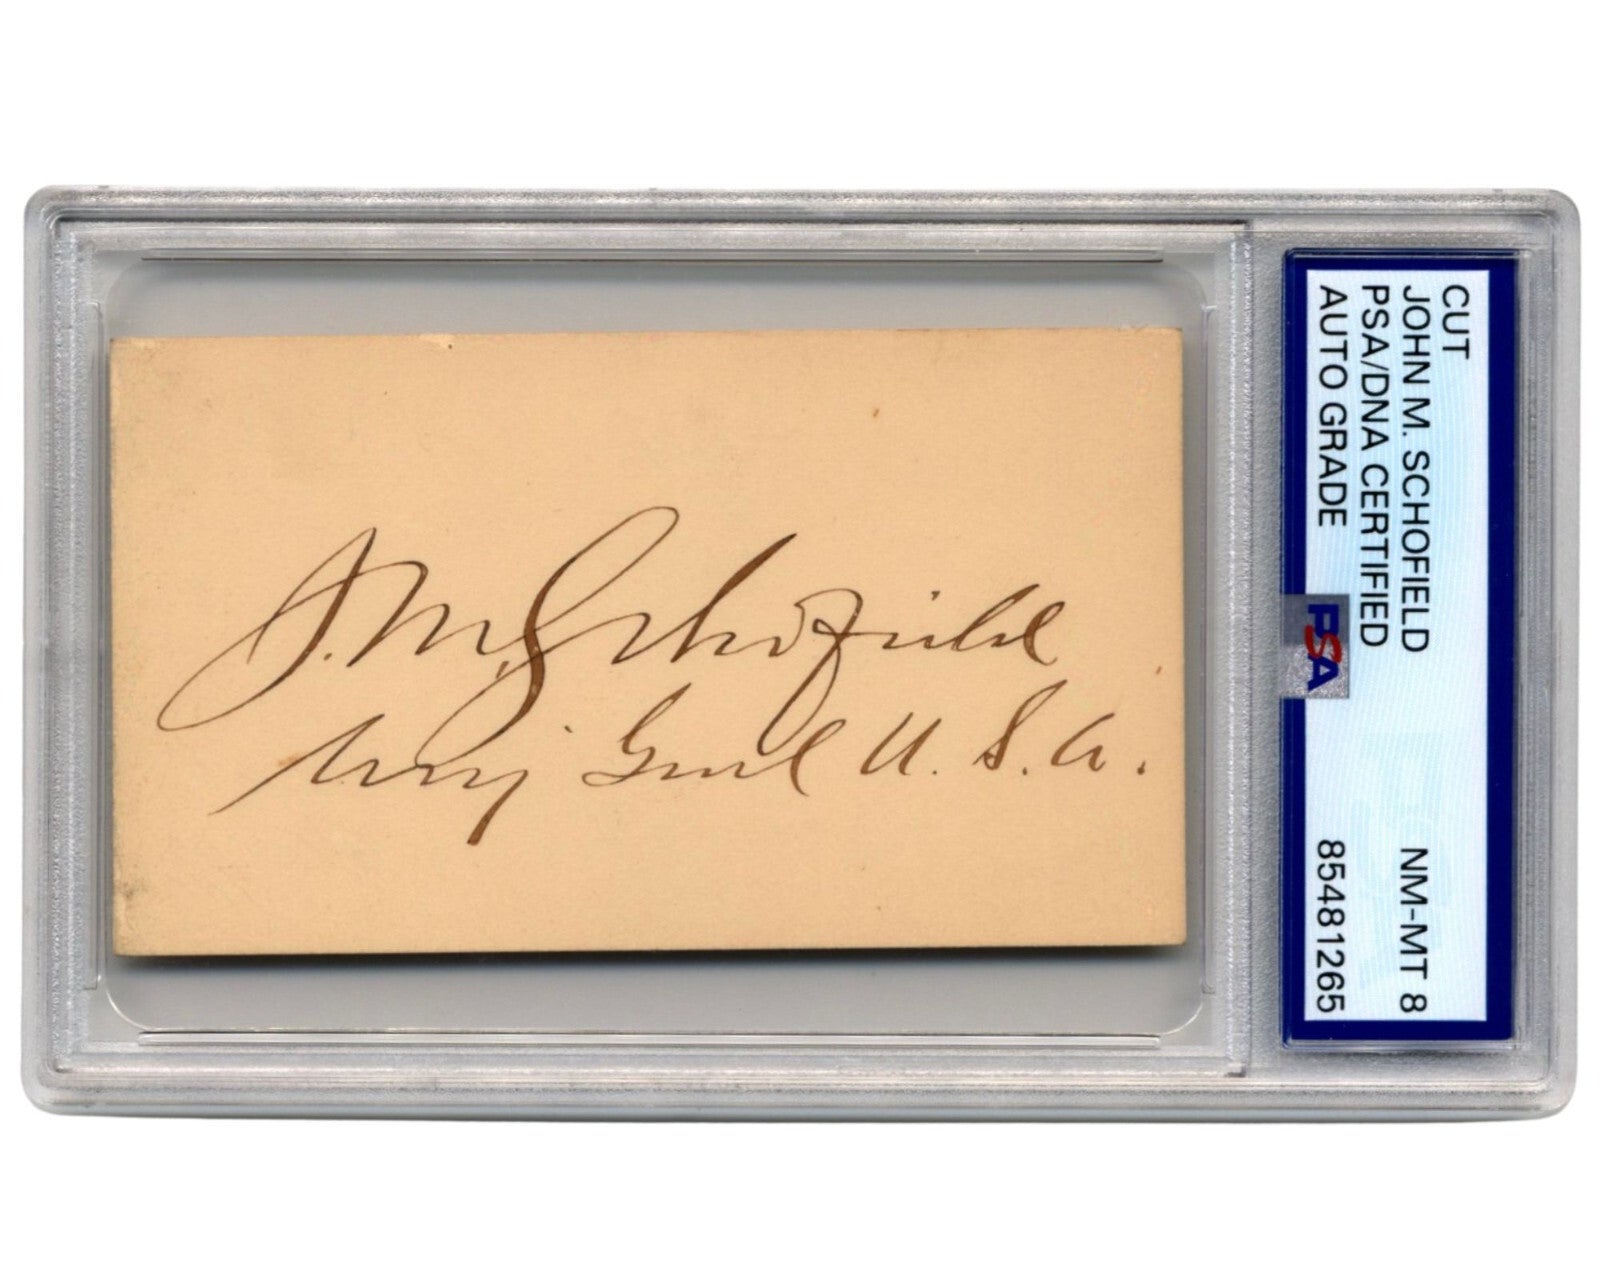 J. M. Schofield
Maj. Genl U. S. A.
CUT
JOHN M. SCHOFIELD
PSA/DNA CERTIFIED
AUTO GRADE
NM-MT 8
85481265
PSA